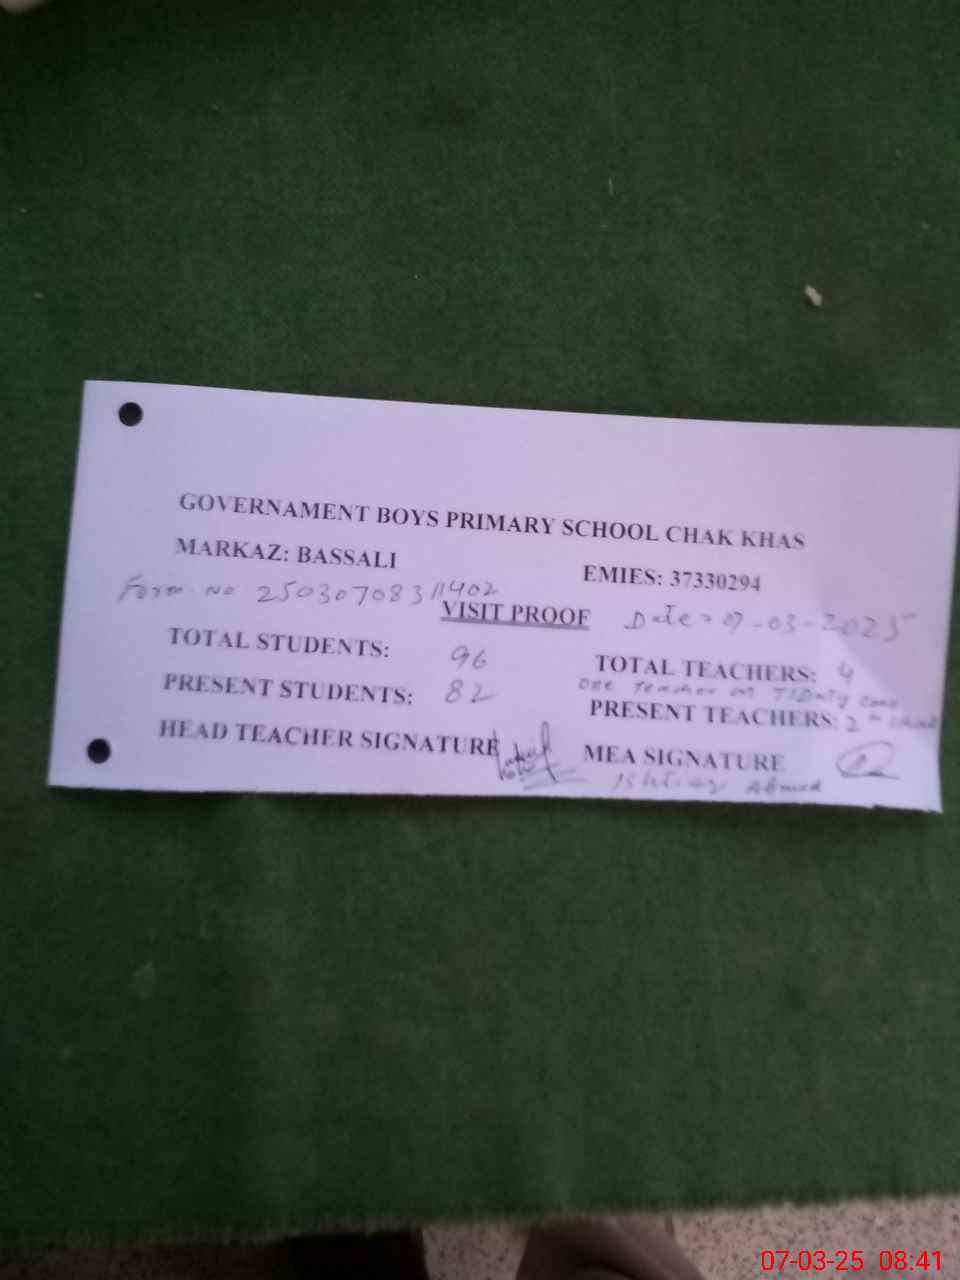 GOVERNAMENT BOYS PRIMARY SCHOOL CHAK KHAS
MARKAZ: BASSALI
EMIES: 37330294
Form no 25030708311402
VISIT PROOF
Date = 07-03-2025
TOTAL STUDENTS: 96
TOTAL TEACHERS: 4
one teacher on
PRESENT STUDENTS: 82
PRESENT TEACHERS: 2
HEAD TEACHER SIGNATURE
MEA SIGNATURE
Ishtiaq Ahmed
07-03-25 08:41